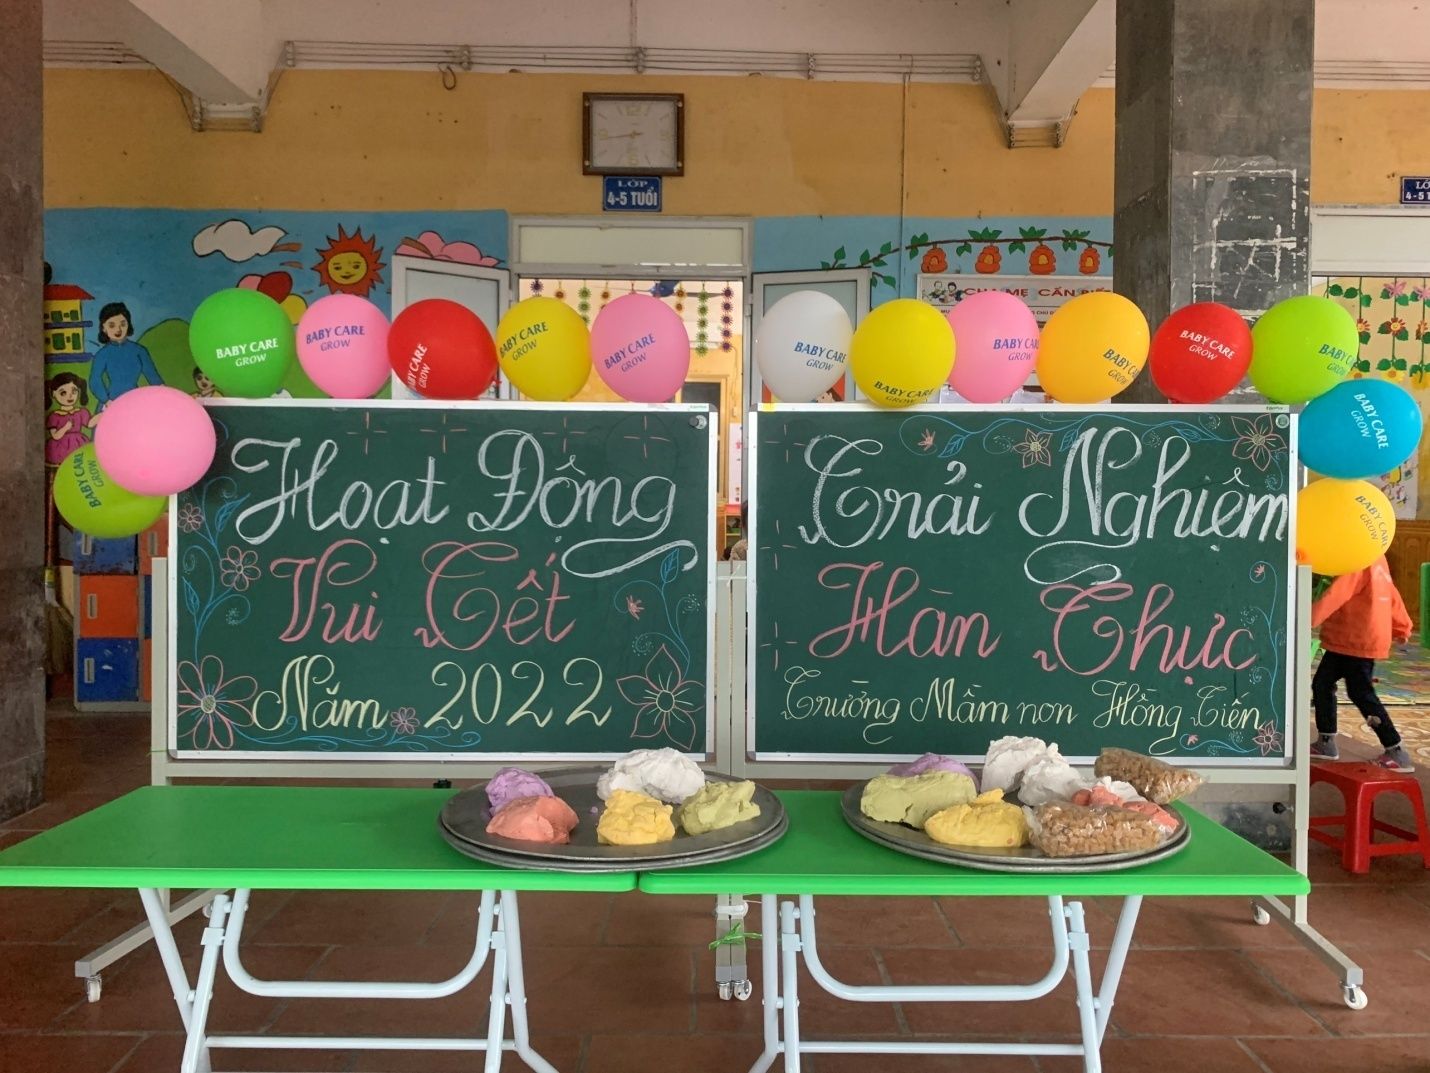 LỚP
4-5 TUỔI
LỚ
4-5 T
BABY CARE
GROW
BABY CARE
GROW
BABY CARE
GROW
BABY CARE
GROW
BABY CARE
GROW
BABY CARE
GROW
BABY CARE
GROW
BABY CARE
GROW
BABY CARE
GROW
BABY CARE
GROW
BABY CARE
GROW
BABY CARE
GROW
BABY CARE
GROW
BABY CARE
GROW
Hoạt Động Trải Nghiệm
Vui Tết Hàn Thực
Năm 2022 Trường Mầm non Hồng Tiến